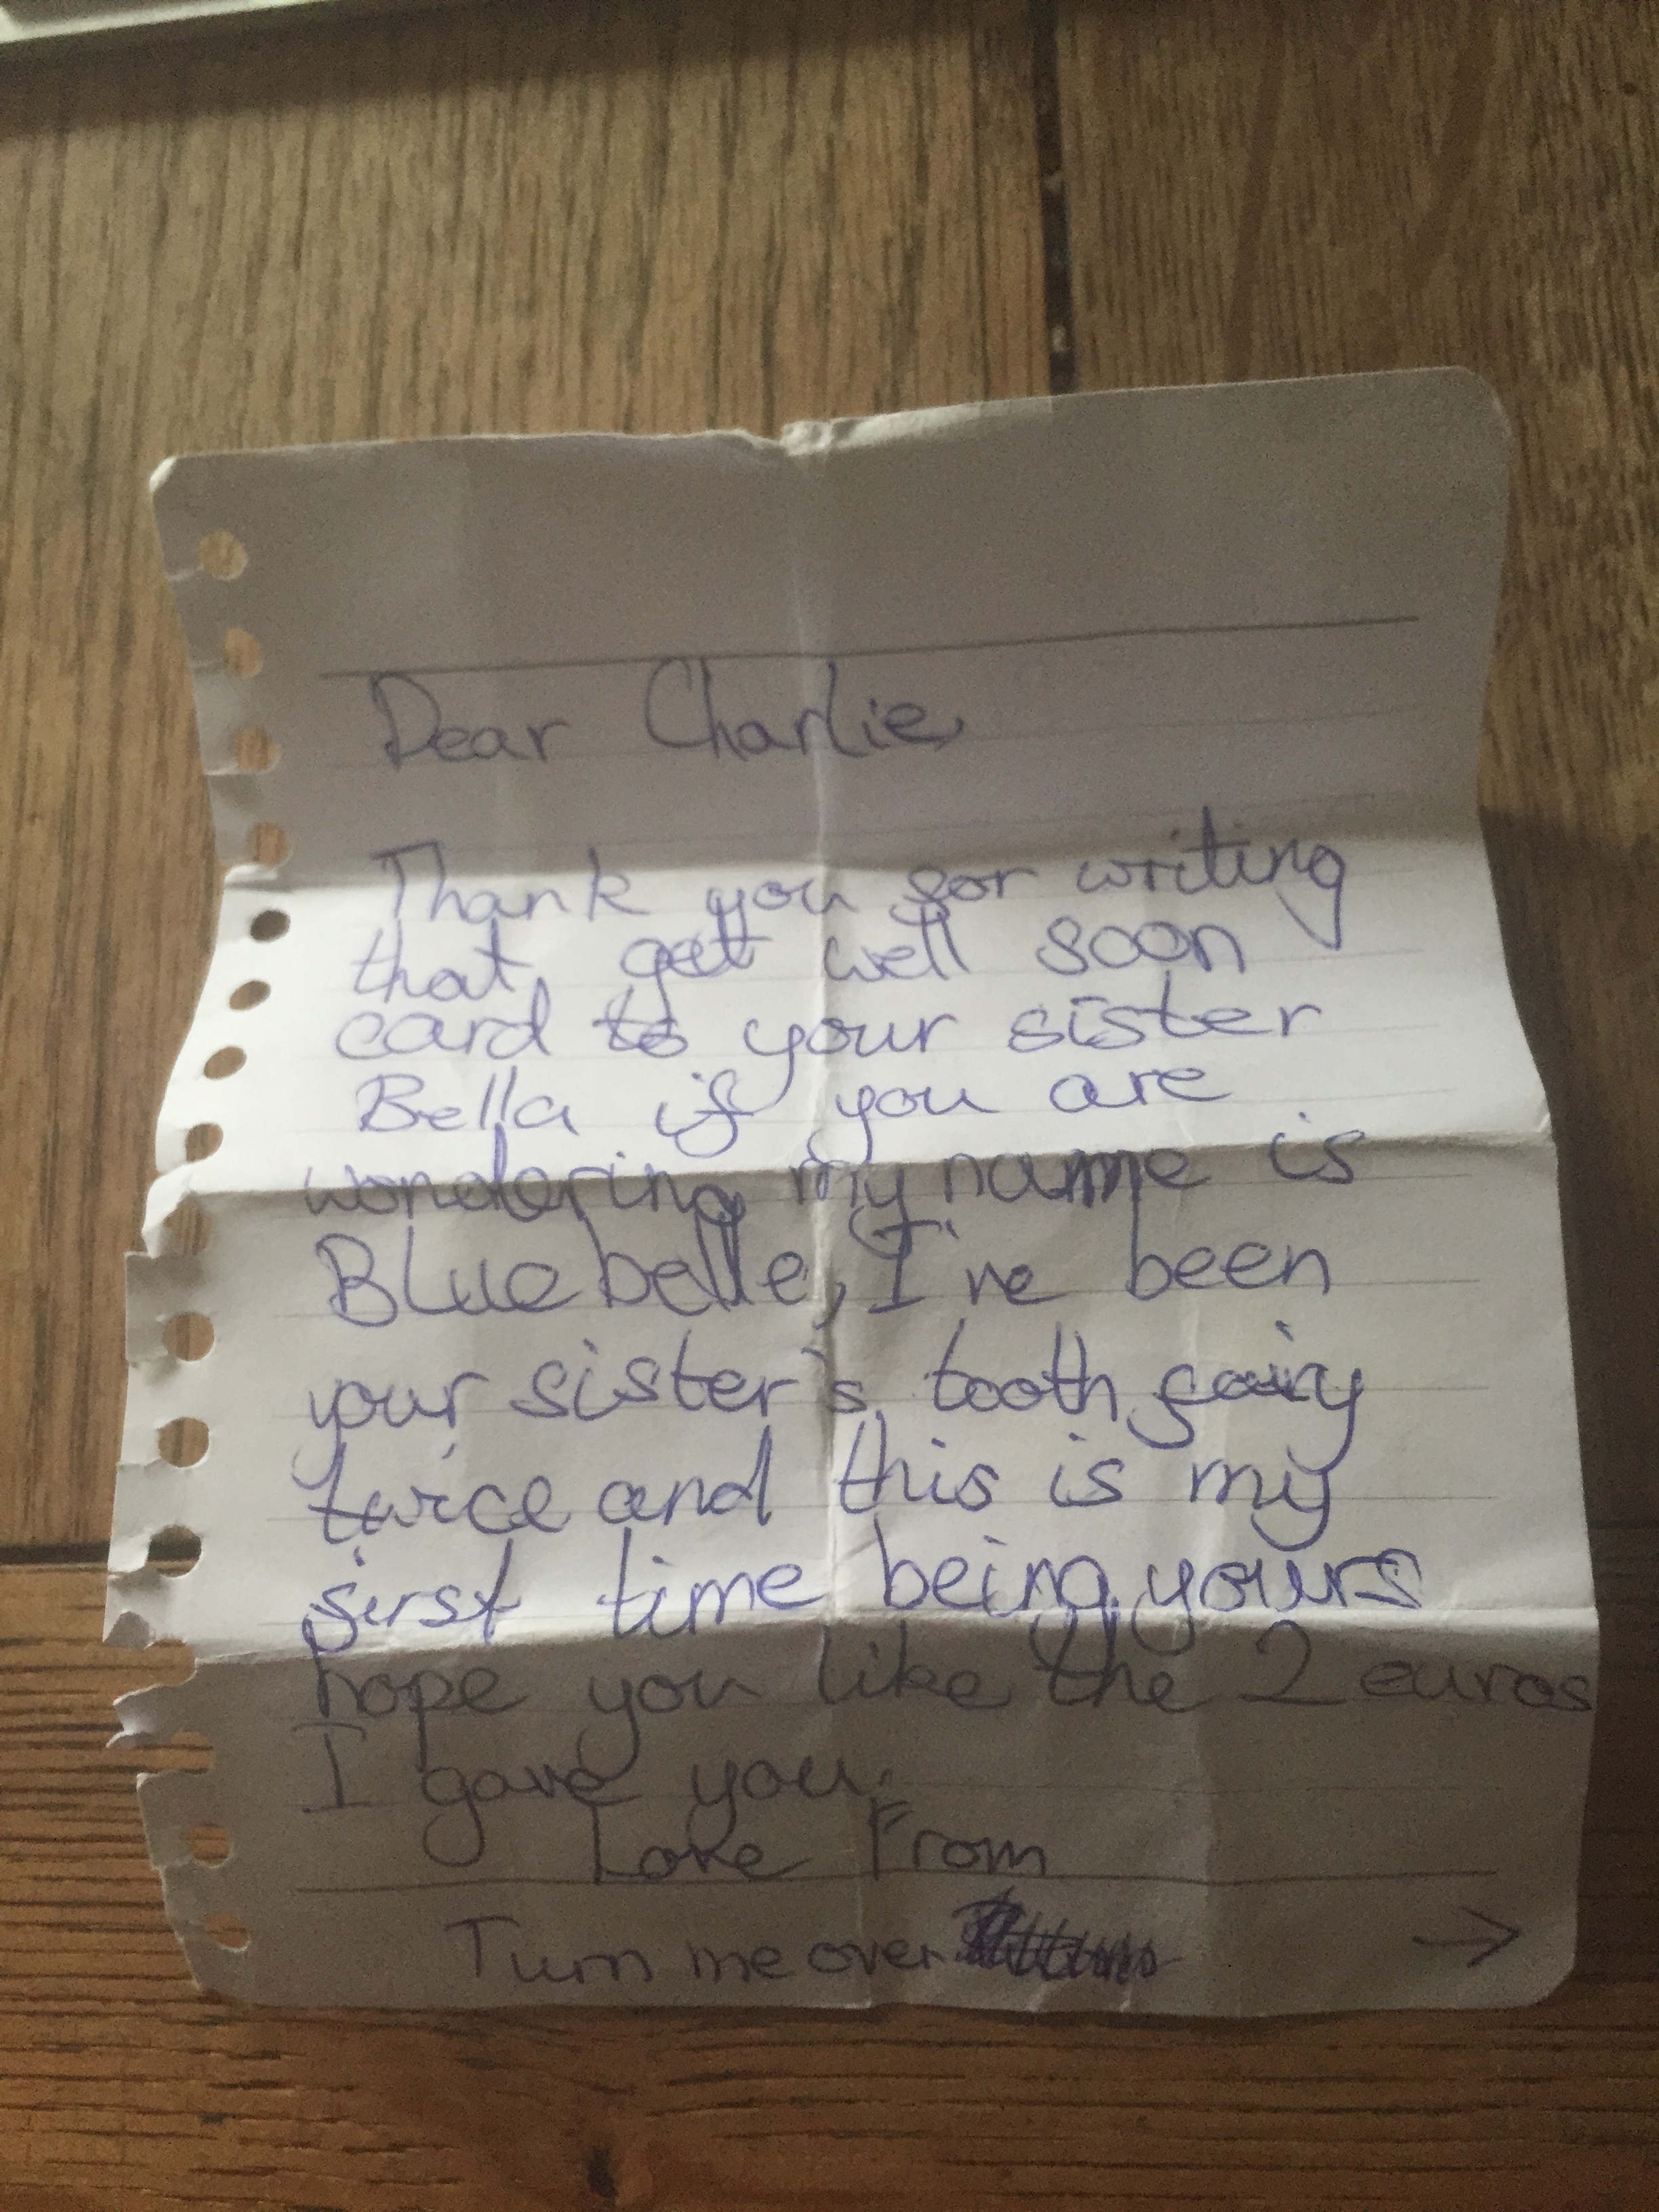 Dear Charlie,
Thank you for writing
that get well soon
card to your sister
Bella if you are
wondering my name is
Bluebelle, I've been
your sister's tooth fairy
twice and this is my
first time being yours
hope you like the 2 euros
I gave you.
Love From
Turn me over →